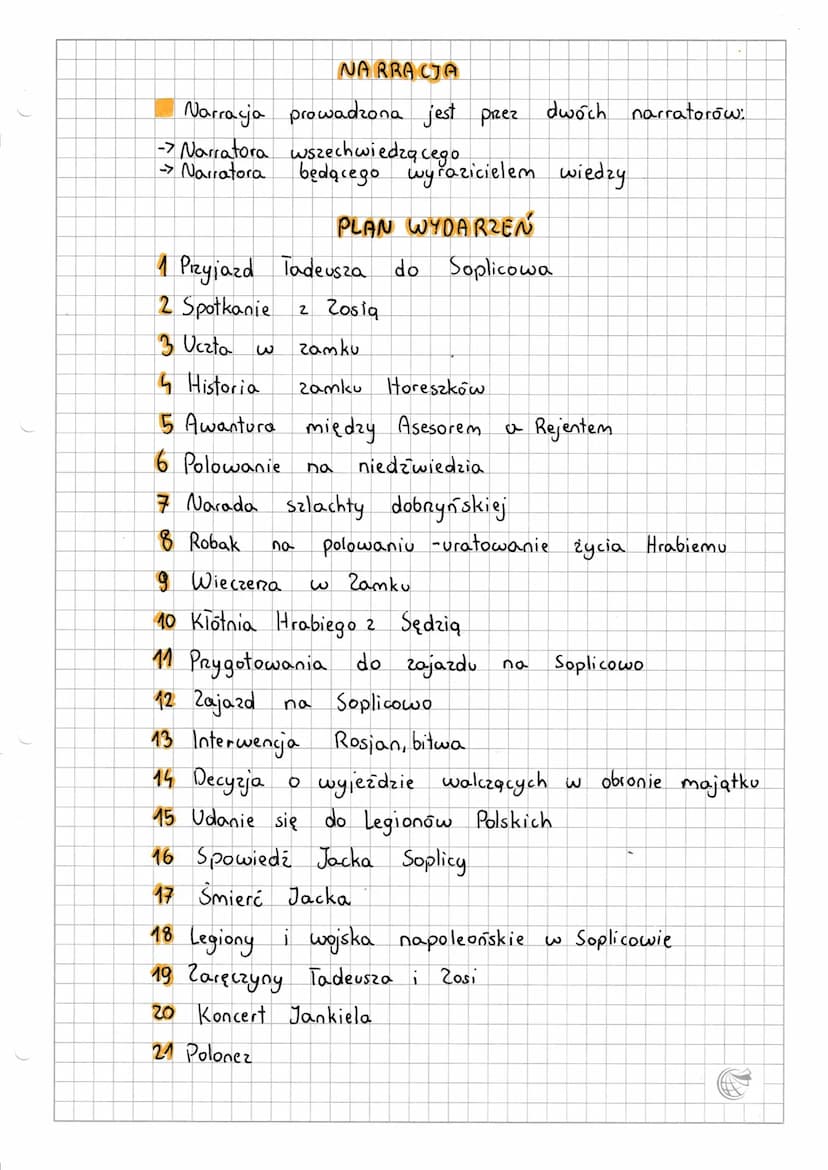 NARRACJA
Narracja prowadzona jest przez dwóch narratorów:
-> Narratora wszechwiedzącego
-> Narratora będącego wyrazicielem wiedzy
PLAN WYDARZEŃ
1 Przyjazd Tadeusza do Soplicowa
2 Spotkanie z Zosią
3 Uczta w zamku
4 Historia zamku Horeszków
5 Awantura między Asesorem a Rejentem
6 Polowanie na niedźwiedzia
7 Narada szlachty dobrzyńskiej
8 Robak na polowaniu - uratowanie życia Hrabiemu
9 Wieczerza w Zamku
10 Kłótnia Hrabiego z Sędzią
11 Przygotowania do zajazdu na Soplicowo
12 Zajazd na Soplicowo
13 Interwencja Rosjan, bitwa
14 Decyzja o wyjeździe walczących w obronie majątku
15 Udanie się do Legionów Polskich
16 Spowiedź Jacka Soplicy
17 Śmierć Jacka
18 Legiony i wojska napoleońskie w Soplicowie
19 Zaręczyny Tadeusza i Zosi
20 Koncert Jankiela
21 Polonez